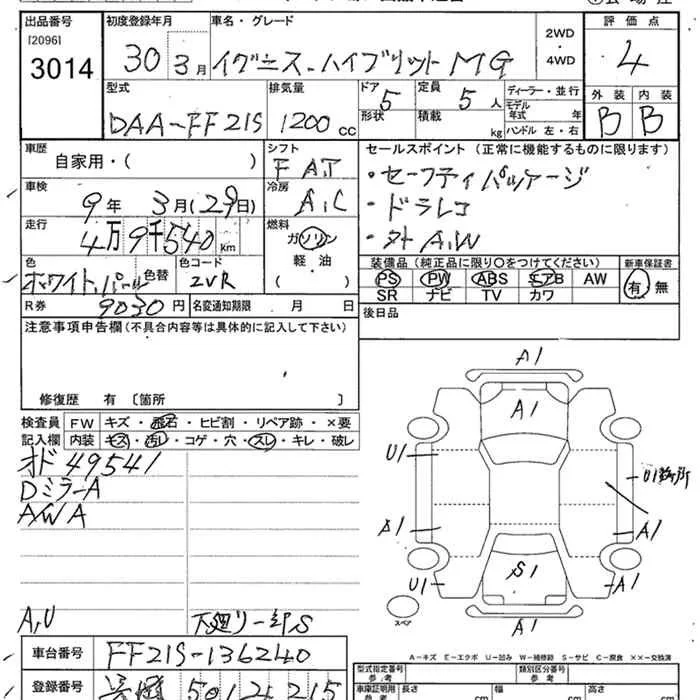 出品番号 初度登録年月 車名・グレード 2WD・4WD 評価点
[2096]
3014 30年 3月 イグニス-ハイブリット MG 4
型式 排気量 ドア 5 定員 5人 ディーラー・並行 外装 内装
DAA-FF21S 1200cc 形状 積載 kg モデル年式 年 B B
ハンドル 左・右
車歴 シフト セールスポイント (正常に機能するものに限ります)
自家用・( ) F A.T ・セーフティパッケージ
車検 9年 3月(29日) 冷房 A.C ・ドラレコ
走行 4万9千540km 燃料 ガソリン ・社外A.W
軽油
( )
色 色替 色コード 装備品 (純正品に限り○をつけてください) 新車保証書
ホワイトパール ZVR PS PW ABS エアB AW 有 無
SR ナビ TV カワ
R券 9030円 名変通知期限 月 日 後日品
注意事項申告欄 (不具合内容等は具体的に記入して下さい)
修復歴 有 〔箇所 〕
検査員記入欄 FW キズ・飛石・ヒビ割・リペア跡・×要
内装 キズ・汚レ・コゲ・穴・スレ・キレ・破レ
オド 49541
DミラーA
AWA
A,U 下廻り一部S
A1
A1
U1
U1
S1
A1
S1
U1
A1
A1
スペア
A-キズ E-エクボ U-凹み W-補修跡 S-サビ C-腐食 ××-交換済
車台番号 FF21S-136240
型式指定番号 参考 類別区分番号 参考
登録番号 501 215
車庫証明用 参考 長さ cm 幅 cm 高さ cm